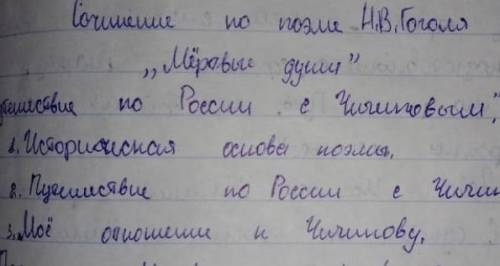 Сочинение по поэме Н.В. Гоголя
„Мёртвые души”
тешествие по России с Чичиковым”
1. Историческая основа поэмы.
2. Путешествие по России с Чичи
3. Моё отношение к Чичикову.